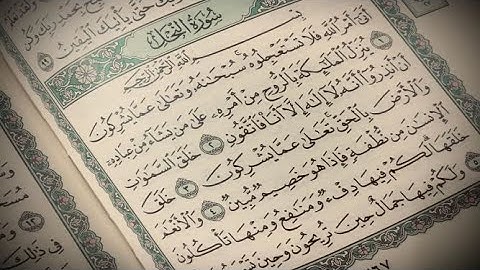 حَتَّىٰ يَأْتِيَكَ ٱلْيَقِينُ ٩٩
سُورَةُ النَّحْلِ
بِسْمِ ٱللَّهِ ٱلرَّحْمَٰنِ ٱلرَّحِيمِ
أَتَىٰٓ أَمْرُ ٱللَّهِ فَلَا تَسْتَعْجِلُوهُ سُبْحَٰنَهُۥ وَتَعَٰلَىٰ عَمَّا يُشْرِكُونَ
١ يُنَزِّلُ ٱلْمَلَٰٓئِكَةَ بِٱلرُّوحِ مِنْ أَمْرِهِۦ عَلَىٰ مَن يَشَآءُ مِنْ عِبَادِهِۦٓ
أَنْ أَنذِرُوٓا۟ أَنَّهُۥ لَآ إِلَٰهَ إِلَّآ أَنَا۠ فَٱتَّقُونِ ٢ خَلَقَ ٱلسَّمَٰوَٰتِ
وَٱلْأَرْضَ بِٱلْحَقِّ تَعَٰلَىٰ عَمَّا يُشْرِكُونَ ٣ خَلَقَ
ٱلْإِنسَٰنَ مِن نُّطْفَةٍ فَإِذَا هُوَ خَصِيمٌ مُّبِينٌ ٤ وَٱلْأَنْعَٰمَ
خَلَقَهَا لَكُمْ فِيهَا دِفْءٌ وَمَنَٰفِعُ وَمِنْهَا تَأْكُلُونَ
وَلَكُمْ فِيهَا جَمَالٌ حِينَ تُرِيحُونَ وَحِينَ